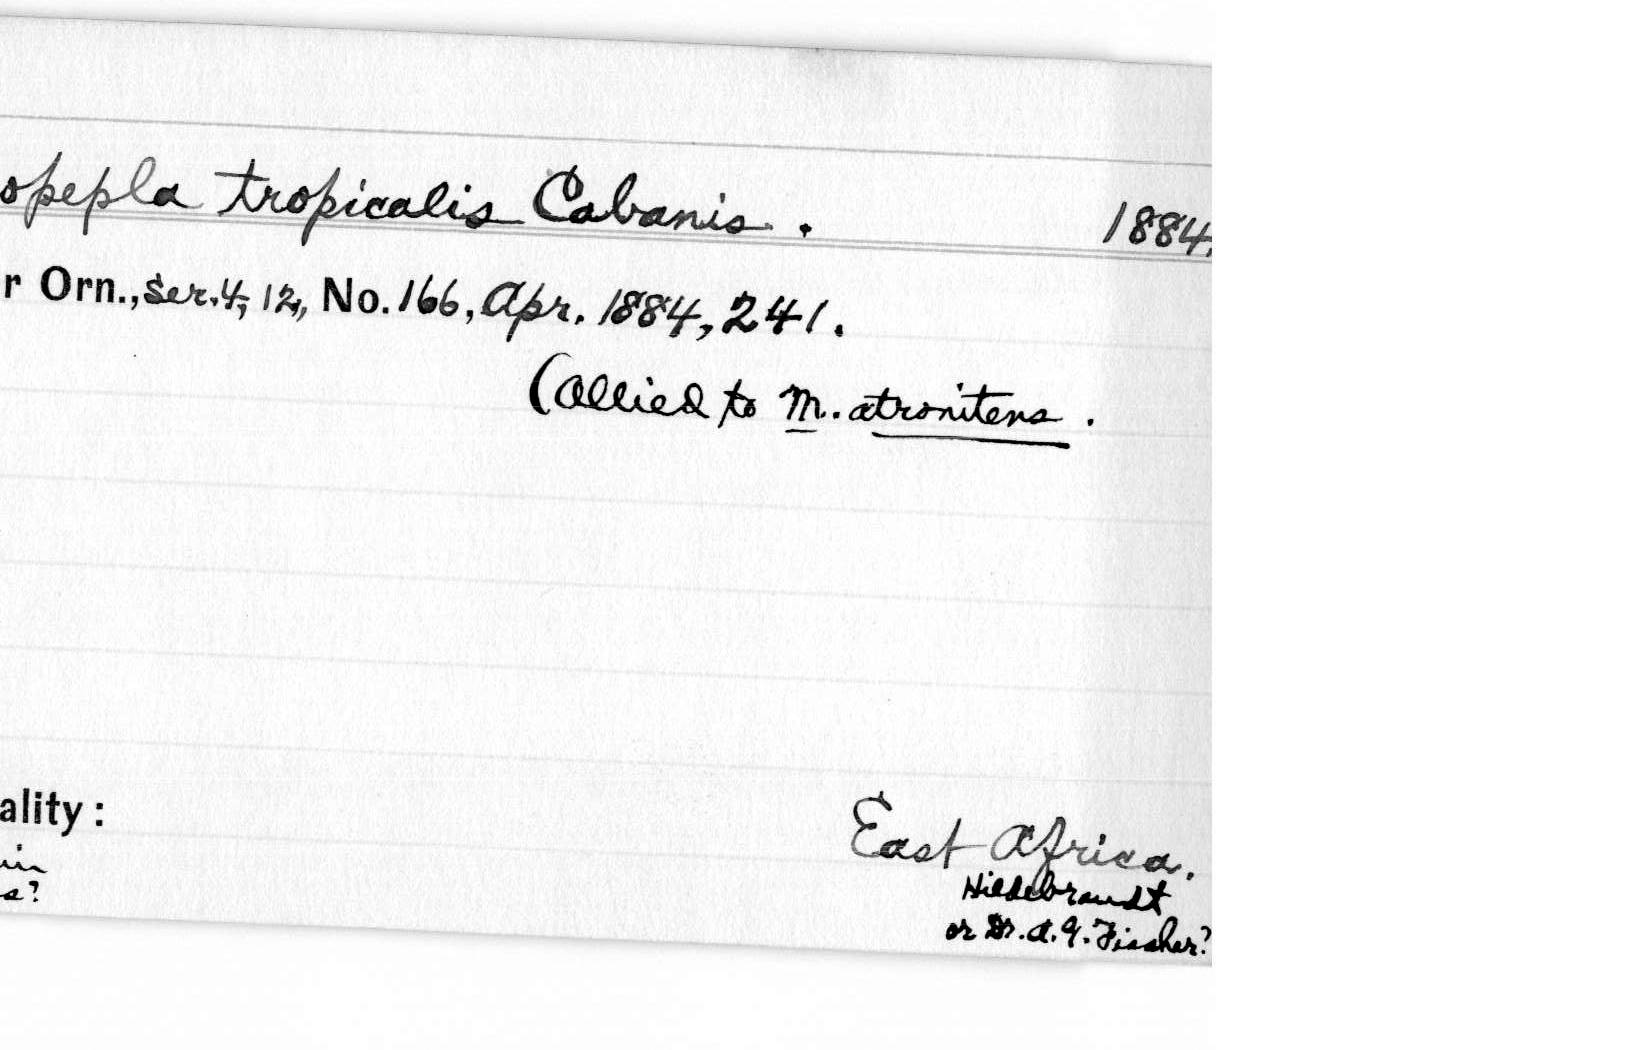 opepla tropicalis Cabanis. 1884.
r Orn., Ser. 4, 12, No. 166, Apr. 1884, 241.
(Allied to M. atronitens.
ality: East Africa.
in Hildebrandt
s? or Dr. A. G. Fischer?